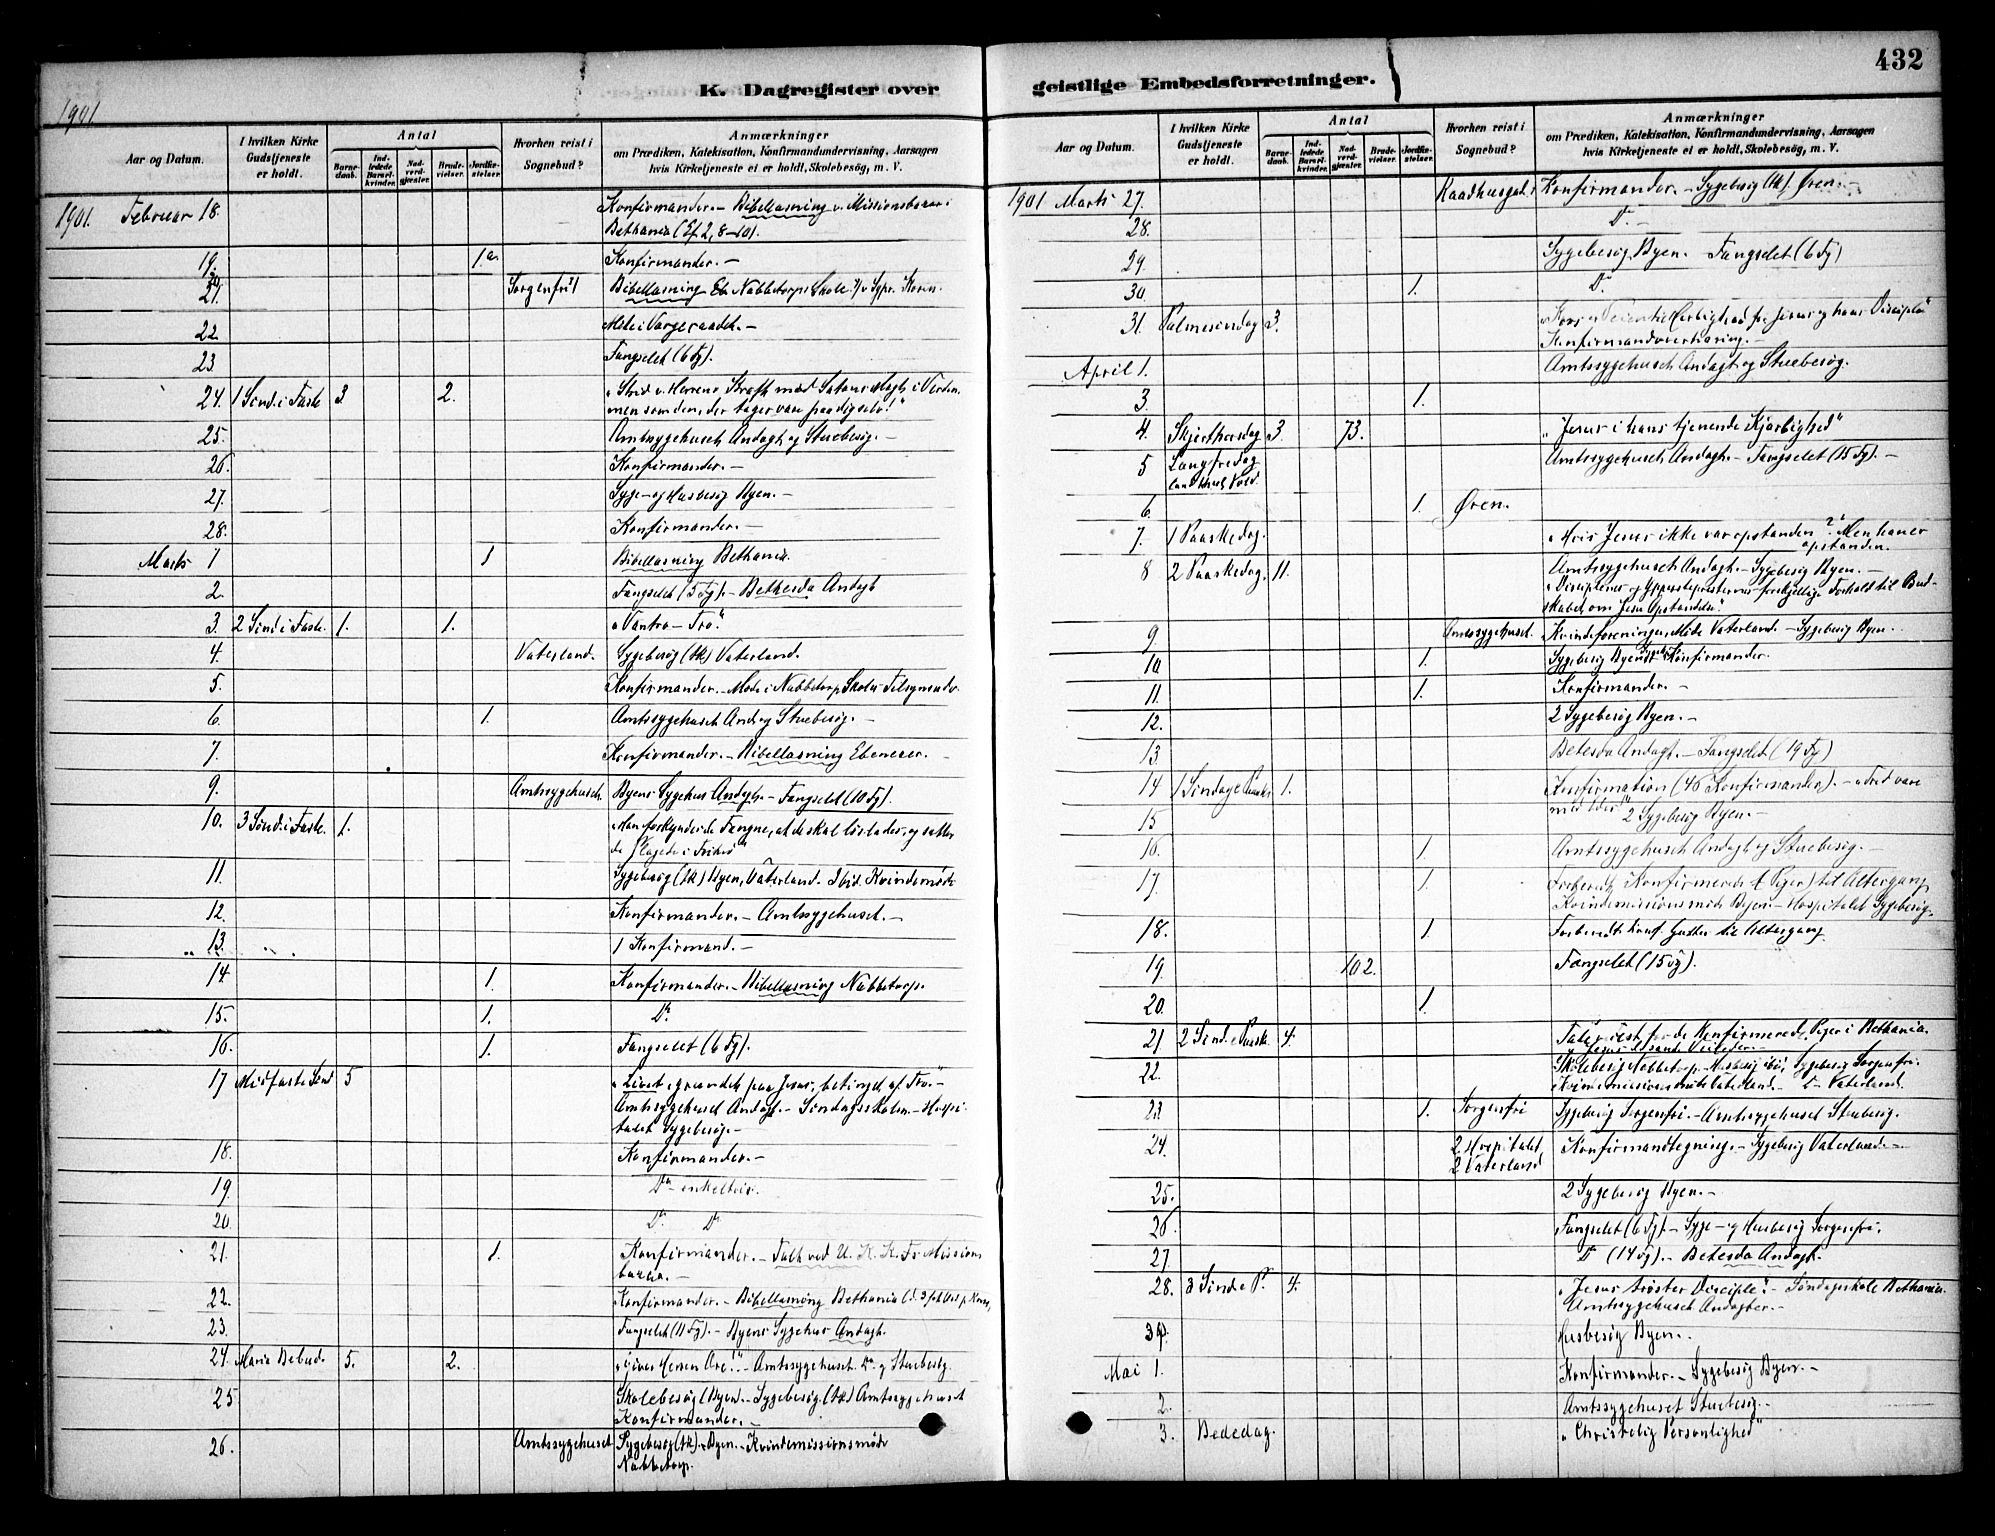 1901
K. Dagregister over
Aar og Datum.
I hvilken Kirke Gudstjeneste er holdt.
Antal
Barnedaab.
Indledede Barselkvinder.
Nadverdgjæster.
Brudevielser.
Jordfæstelser.
Hvorhen reist i Sognebud?
Anmærkninger
om Prædiken, Katekisation, Konfirmandundervisning, Aarsagen
hvis Kirketjeneste ei er holdt, Skolebesög, m. V.
1901. Februar 18. Konfirmander. – Bibellæsning v. Missionsbazar i
Bethania (Ef. 2, 8–10).
19. 1. Konfirmander. –
21. Sorgenfri Bibellæsning Nabbetorps Skole
22 Møte i Vergeraadet. –
23 Fængselet (6 Fg).
24. 1 Sønd. i Faste 3. 2. „Strid v. Herrens Kraft mod Satans Magt i Verden
men som den, der tager vare paa dig selv!"
25. Amtssygehuset Andagt og Stuebesøg. –
26. Konfirmander. –
27. Syge- og Husbesøg Byen. –
28. Konfirmander. –
Marts 1 1 Bibellæsning Bethania.
2. Fængselet (5 Fg). – Bethesda Andagt
3. 2 Sønd i Faste. 1. 1. „Vantro – Tro."
4. Vaterland. Sygebesøg (Ak) Vaterland.
5. Konfirmander. – Møde i Nabbetorp Skole Tilsynsudv.
6. 1. Amtssygehuset And. og Stuebesøg. –
7. Konfirmander. – Bibellæsning Ebenezer. –
9. Amtssygehuset. Byens Sygehus Andagt. – Fængselet (10 Fg).
10. 3 Sønd. i Faste. 1. „Han forkynder de Fangne, at de skal løslades, og sætte
de Plagede i Frihed"
11. Sygebesøg (Ak) Byen, Vaterland. Ibid. Kvindemøde
12. Konfirmander. – Amtssygehuset. –
13. 1 Konfirmand. –
14. 1. Konfirmander. – Bibellæsning Nabbetorp.
15. 1. Do
16. 1. Fængselet (6 Fg).
17 Midfaste Sønd 5 „Livet, grundet paa Jesus, betinget af Tro." –
Amtssygehuset Andagt. – Søndagsskolen. – Hospi-
talet Sygebesøg. –
18. Konfirmander. –
19. Do enkeltvis.
20. Do Do
21. 1. Konfirmander. – Talt ved U. K. K. F. Missions
bazar. –
22. Konfirmander. – Bibellæsning Bethania
23. Fængselet (11 Fg). – Byens Sygehus Andagt.
24. Maria Bebud. 5. 2. „Giver Herren Ære!" – Amtssygehuset Do og Stuebesøg.
25 Skolebesøg (Byen). – Sygebesøg (Ak) Amtssygehuset
Konfirmander. –
26. Amtssygehuset Sygebesøg (Ak). Byen. – Kvindemissionsmøde
Nabbetorp.
432
geistlige Embedsforretninger.
Aar og Datum.
I hvilken Kirke Gudstjeneste er holdt.
Antal
Barnedaab.
Indledede Barselkvinder.
Nadverdgjæster.
Brudevielser.
Jordfæstelser.
Hvorhen reist i Sognebud?
Anmærkninger
om Prædiken, Katekisation, Konfirmandundervisning, Aarsagen
hvis Kirketjeneste ei er holdt, Skolebesög, m. V.
1901 Marts 27. Raadhusgad. Konfirmander. – Sygebesøg (Ak). Øren. –
28. Do –
29. Sygebesøg Byen. Fængselet (6 Fg)
30. 1. Do
31. Palmesøndag 3. Herlighed for Jesus og hans Disciple"
Konfirmandoverhøring. –
April 1. Amtssygehuset Andagt og Stuebesøg.
3. 1.
4. Skjærthorsdag 3 73. „Jesus i hans tjenende Kjærlighed"
5 Langfredag Amtssygehuset Andagt. – Fængselet (15 Fg). –
6. 1. Øren.
7. 1 Paaskedag. „Hvis Jesus ikke var opstanden? Men han er
opstanden.
8 2 Paaskedag. 11. Amtssygehuset Andagt. – Sygebesøg Byen. –
„Disciplenes og Ypperstepræsternes forskjellige Forhold til Bud-
skabet om Jesu Opstandelse."
9. Amtssygehuset. Kvindeforeninger, Møde Vaterland. – Sygebesøg Byen. –
10 1. Sygebesøg Byen Konfirmander.
11. 1. Konfirmander. –
12. 2 Sygebesøg Byen. –
13. Betesda Andagt. – Fængselet (19 Fg)
14 1 Søndag e Paaske 1. Konfirmation (46 Konfirmander). – „Fred være
med eder"
15 2 Sygebesøg Byen. –
16. 1. Amtssygehuset Andagt og Stuebesøg. –
17. 1. Forberedt Konfirmerede (Piger) til Altergang
Kvindemissionsmøde Byen. – Hospitalet Sygebesøg.
18. 1 Forberedt Konf. Gutter til Altergang
19. 102. Fængselet (15 Fg).
20. 1.
21 2 Sønd. e Paaske 4. for de Konfirmerede Piger i Bethania.
22. Skolebesøg Nabbetorp – Husbesøg ibi, Sygebesøg Sorgenfri
Kvindemissionsmøde Vaterland. – Do Vaterland.
23. 1. Sorgenfri Sygebesøg Sorgenfri. – Amtssygehuset Stuebesøg.
24. 2. Hospitalet, Konfirmandtegning. – Sygebesøg Vaterland. –
2 Vaterland
25. 2 Sygebesøg Byen. –
26. Fængselet (6 Fg). – Syge- og Husbesøg Sorgenfri.
27. Do (14 Fg). – Betesda Andagt.
28. 3 Sønd e P. 4. „Jesus trøster Disciple." – Søndagsskole Bethania.
Amtssygehuset Andagter. –
30. Husbesøg Byen.
Mai 1. Konfirmander. – Sygebesøg Byen. –
2. Amtssygehuset Stuebesøg. –
3. Bededag. „Christelig Personlighed"